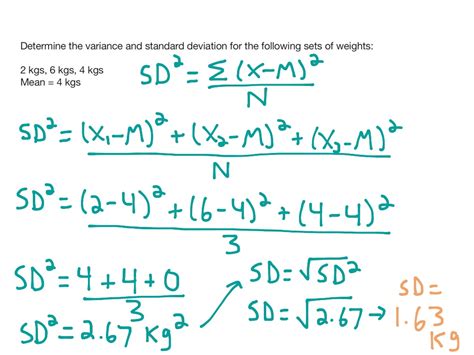 Determine the variance and standard deviation for the following sets of weights:
2 kgs, 6 kgs, 4 kgs
Mean = 4 kgs
SD² = Σ(X-M)² / N
SD² = (X₁-M)² + (X₂-M)² + (X₃-M)² / N
SD² = (2-4)² + (6-4)² + (4-4)² / 3
SD² = 4 + 4 + 0 / 3
SD² = 2.67 Kg²
SD = √SD²
SD = √2.67 →
SD =
1.63
Kg